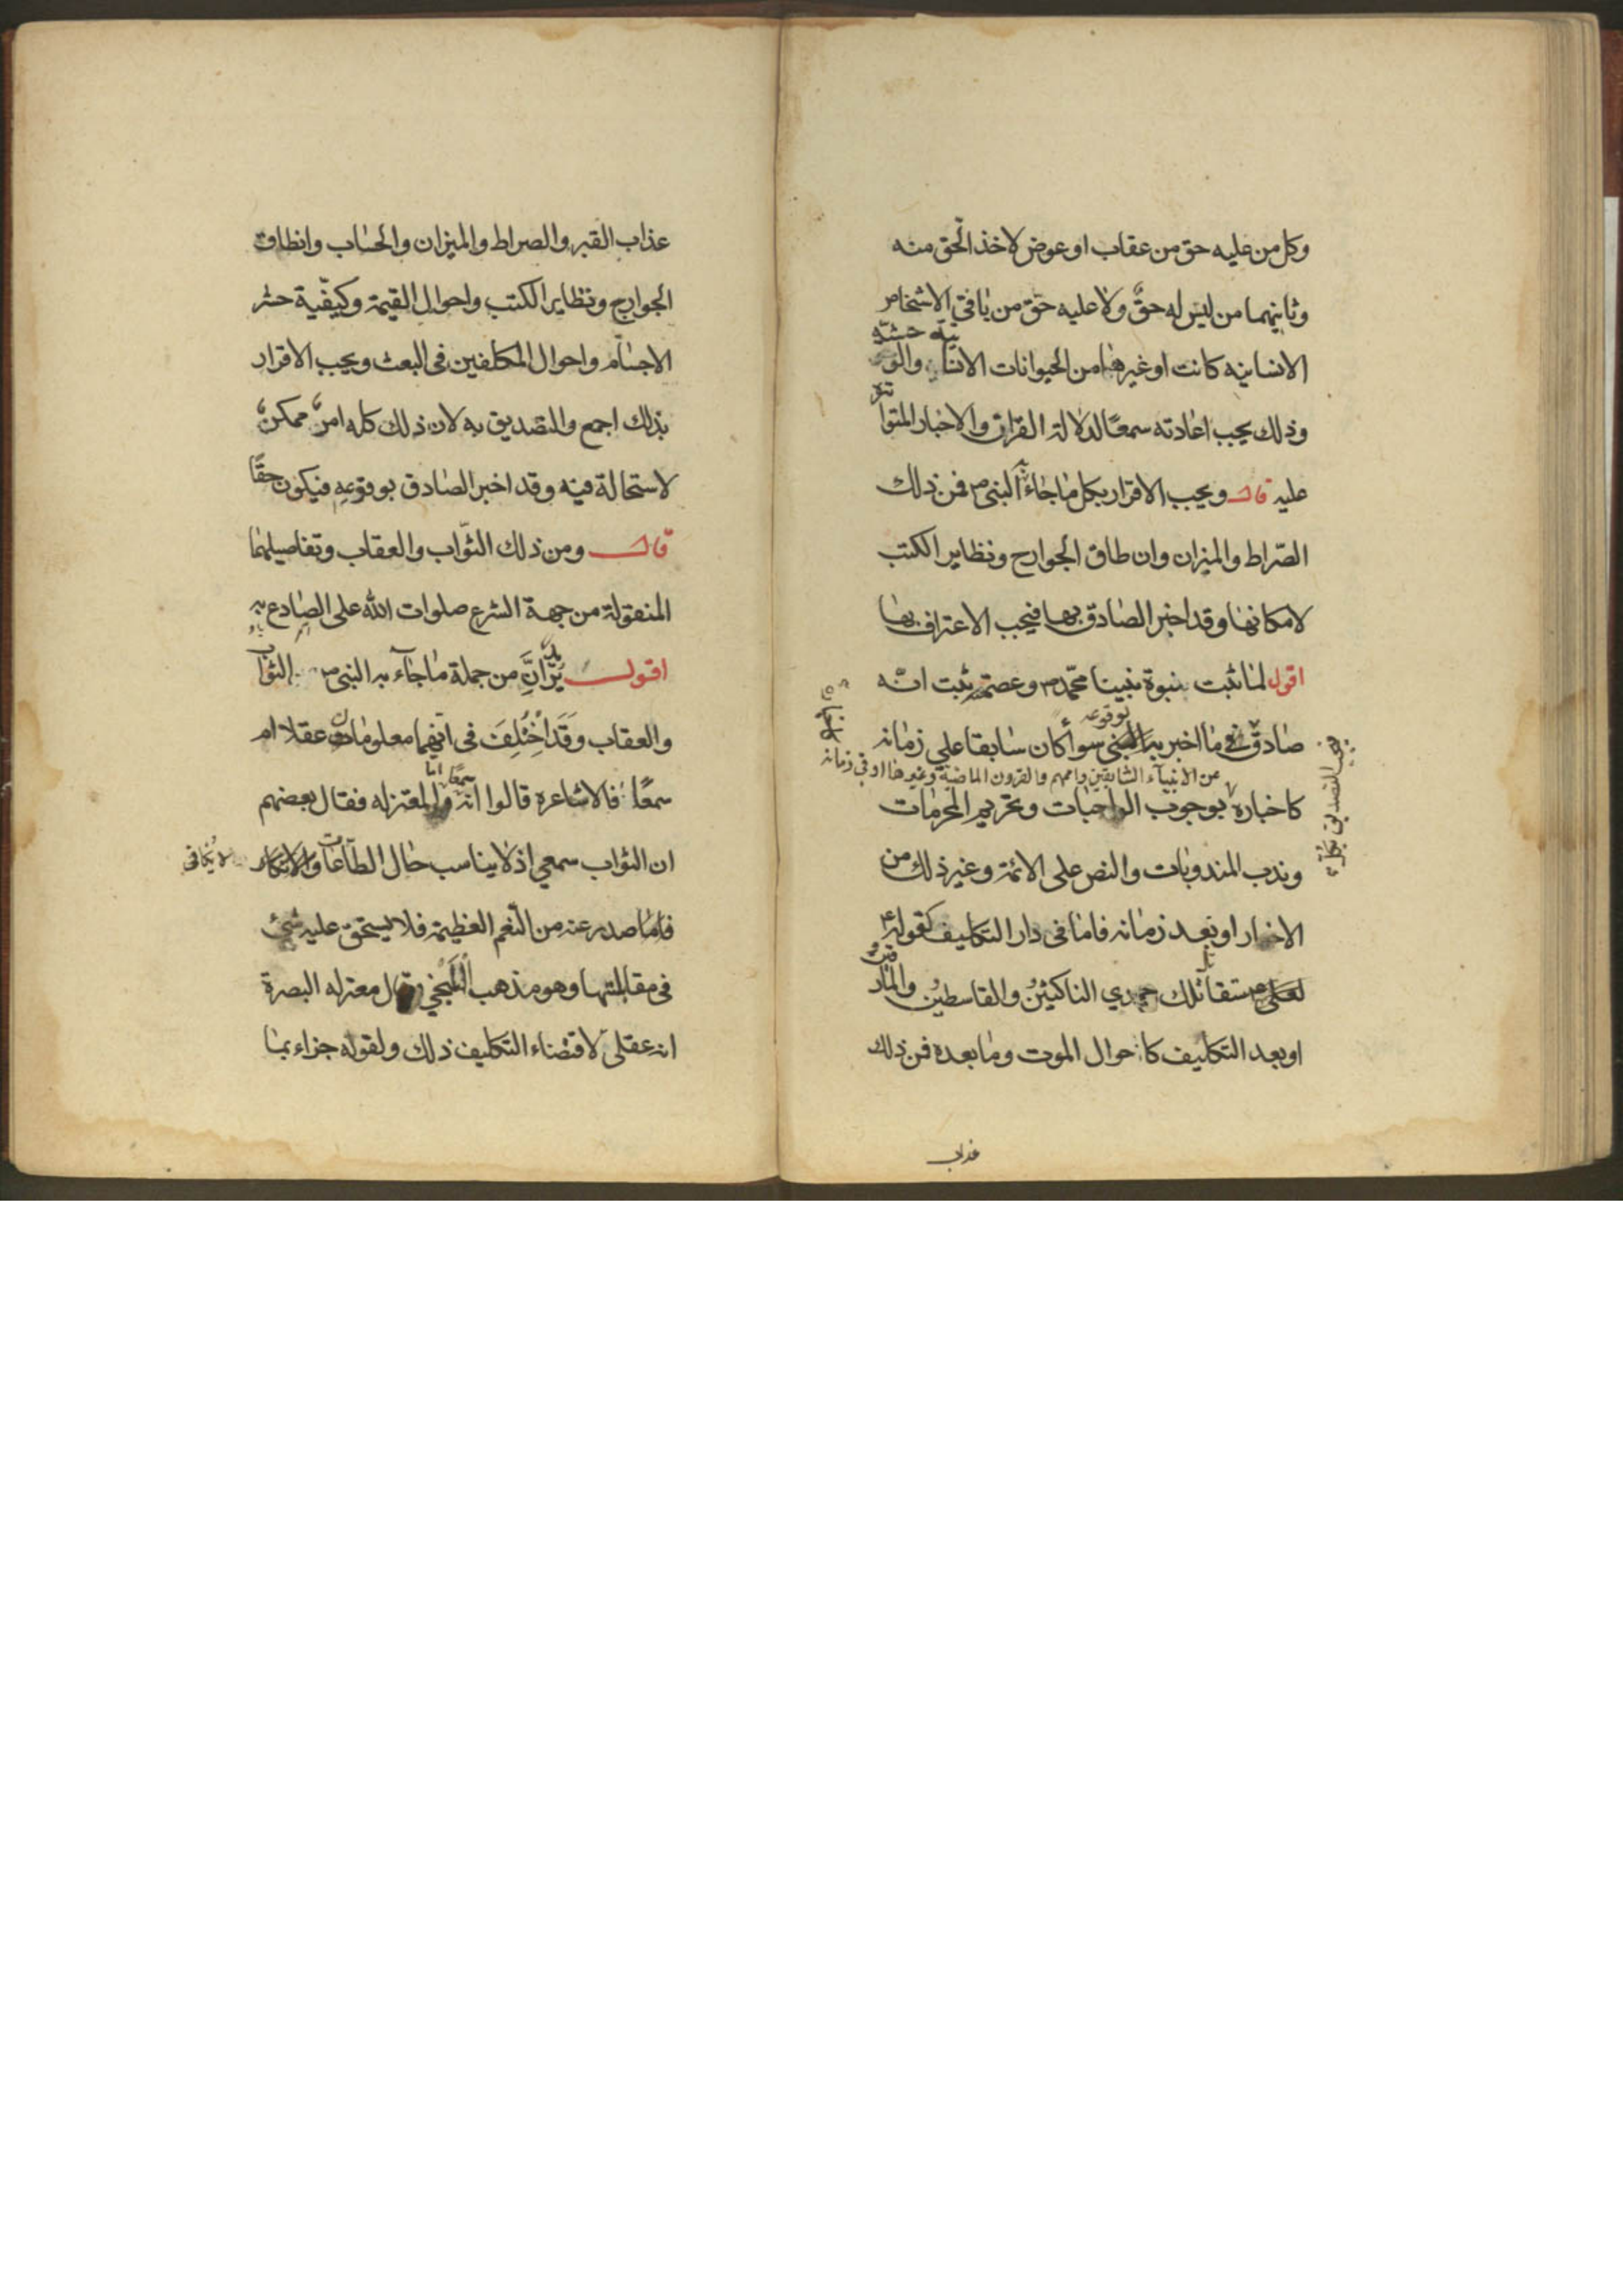 وكل من عليه حق من عقاب او عوض لاخذ الحق منه
وثانيهما من ليس له حقٌ ولا عليه حق من باقي الاشخاص
الانسانيه كانت او غيرها من الحيوانات الانسية والوحشيّه
وذلك يجب اعادته سمعًا لدلالة القران والاخبار المتواتره
عليه قال ويجب الاقرار بكل ما جاء به النبى ص فمن ذلك
الصّراط والميزان وانطاق الجوارح وتطاير الكتب
لامكانها وقد اخبر الصادق بها فيجب الاعتراف بها
اقول لما ثبت نبوة نبينا محمّد ص وعصمته ثبت انّه
صادقٌ في ما اخبر به بوقوعه سواء كان سابقا علي زمانه
عن الانبياء السابقين واممهم والقرون الماضية وغيرها او في زمانه
كاخباره بوجوب الواجبات وتحريم المحرمات
وندب المندوبات والنص على الائمة وغير ذلك من
الاخبار او بعد زمانه فاما فى دار التكليف كقوله ع
لعلى ع ستقاتل بعدي الناكثين والقاسطين والمارقين
او بعد التكليف كاحوال الموت وما بعده فمن ذلك
عذاب
عذاب القبر والصراط والميزان والحساب وانطاق
الجوارح وتطاير الكتب واحوال القيمة وكيفيّة حشر
الاجسام واحوال المكلفين فى البعث ويجب الاقرار
بذلك اجمع والتصديق به لان ذلك كله امرٌ ممكنٌ
لا ستحالة فيه وقد اخبر الصادق بوقوعه فيكون حقًا
قال ومن ذلك الثّواب والعقاب وتفاصيلهما
المنقولة من جهة الشرع صلوات الله على الصادع به
اقول يريد انَّ من جملة ما جاء به النبى ص الثواب
والعقاب وَقَد اخْتُلِفَ فى انهما معلومان عقلا ام
سمعًا فالاشاعره قالوا انه سمعًا اما المعتزله فقال بعضهم
ان الثواب سمعي اذ لا يناسب حال الطّاعات ولا يكافى
فاما صدر عنه من النّعم العظيمة فلا يستحق عليه شئ
فى مقابلتها وهو مذهب البلخي وقال معتزله البصرة
انه عقلى لاقتضاء التكليف ذلك ولقوله جزاء بما